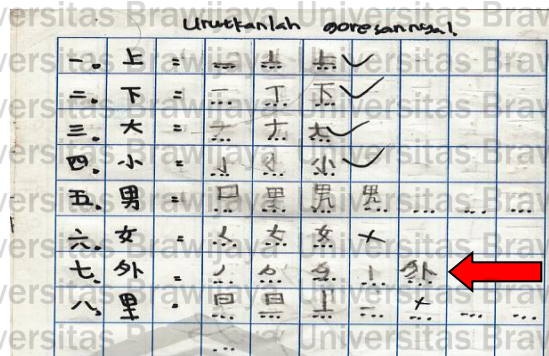 Urutkanlah goresannya!
一. 上 = 二 上 上
二. 下 = 一 丁 下
三. 大 = ナ 大 大
四. 小 = 亅 小
五. 男 = 口 里 男 男 ... ... ...
六. 女 = く 女 女
七. 外 = ノ ク タ 丨 外
八. 里 = 日 旦 土 二 ... ... ...
Universitas Brawijaya